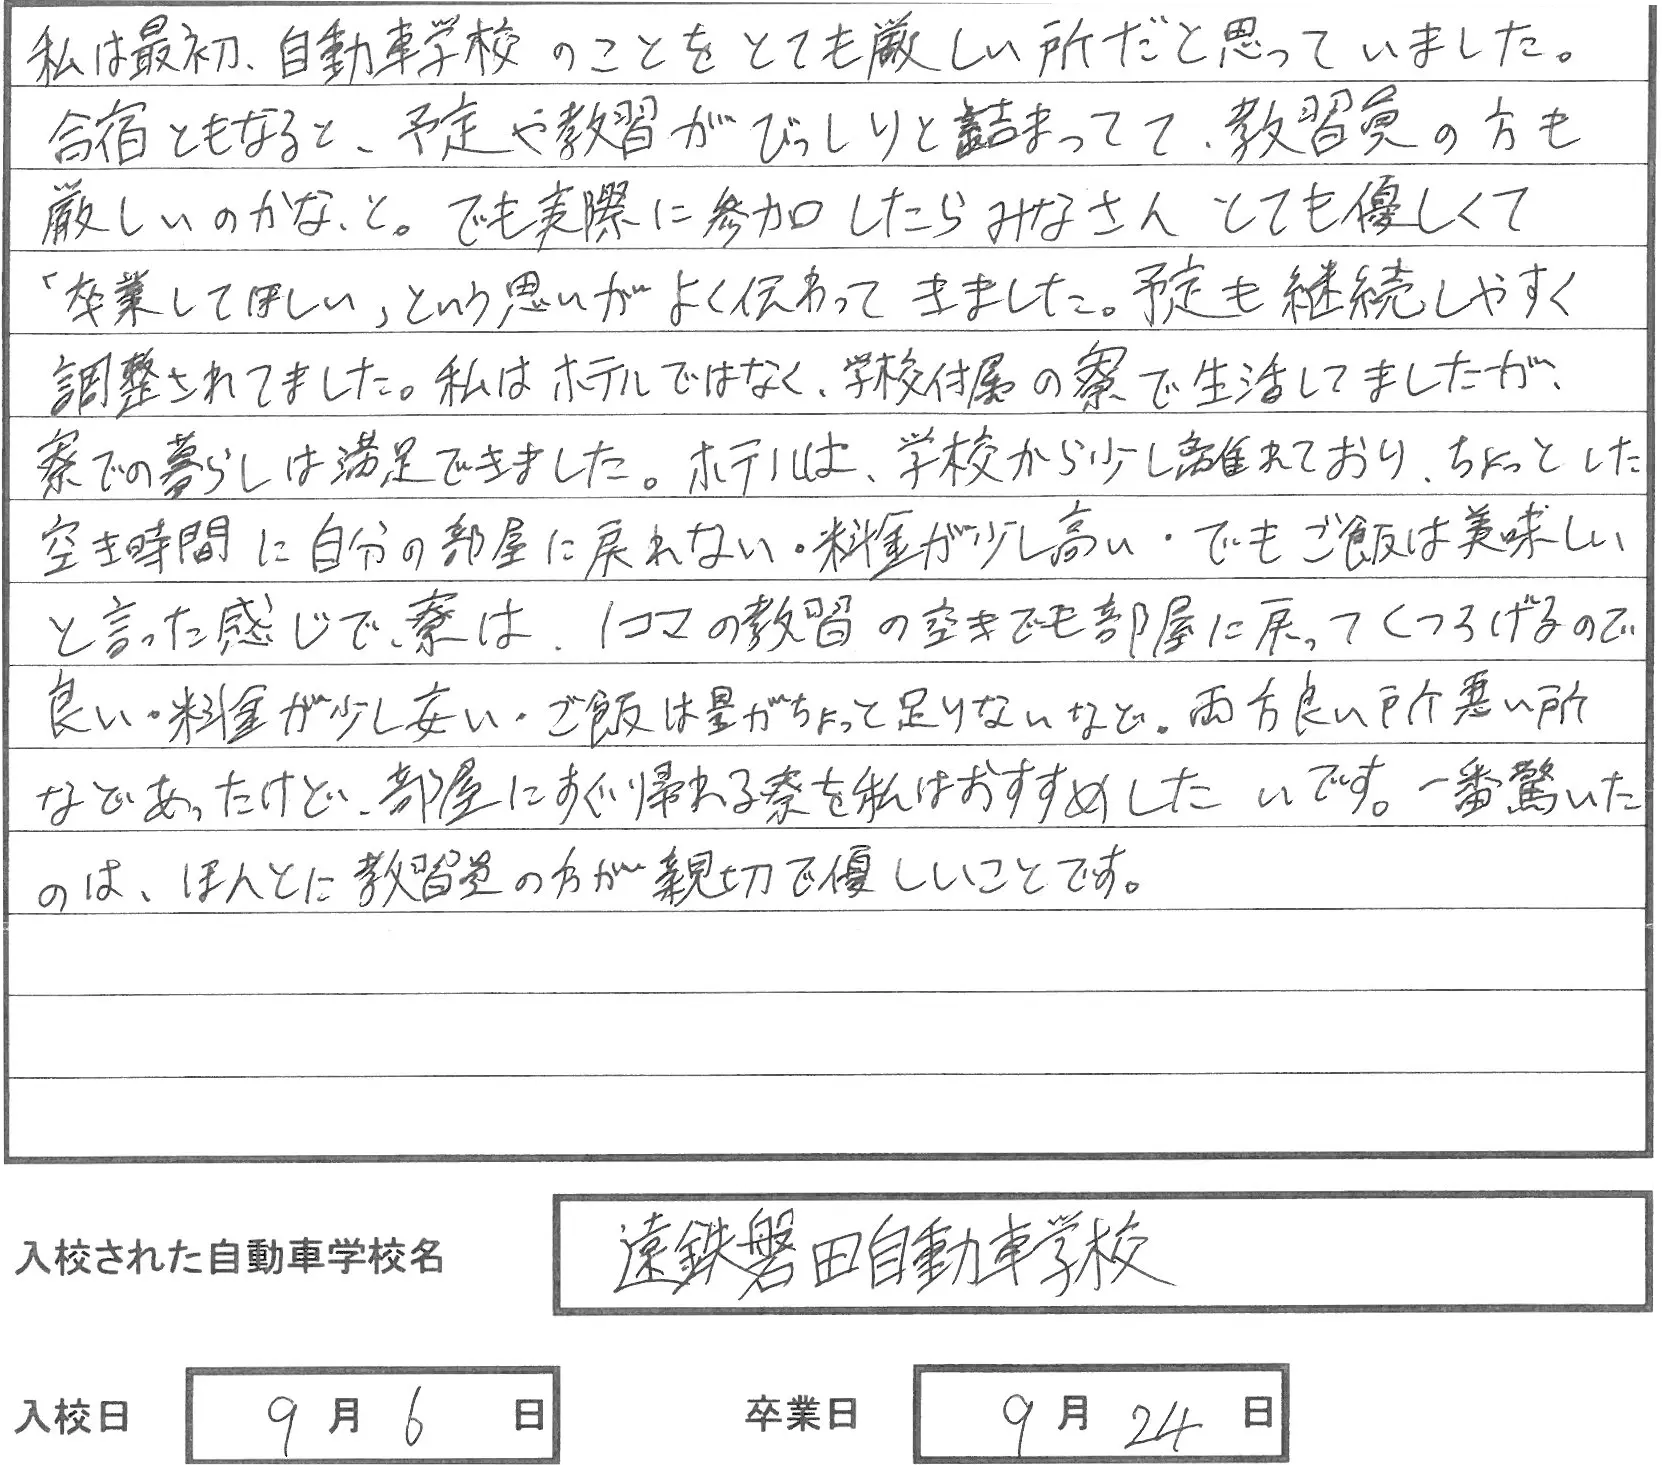 私は最初、自動車学校のことをとても厳しい所だと思っていました。
合宿ともなると、予定や教習がびっしりと詰まってて、教習員の方も
厳しいのかな、と。でも実際に参加したらみなさんとても優しくて
「卒業してほしい」という思いがよく伝わってきました。予定も継続しやすく
調整されてました。私はホテルではなく、学校付属の寮で生活してましたが、
寮での暮らしは満足できました。ホテルは、学校から少し離れており、ちょっとした
空き時間に自分の部屋に戻れない・料金が少し高い・でもご飯は美味しい
と言った感じで、寮は、1コマの教習の空きでも部屋に戻ってくつろげるので
良い・料金が少し安い・ご飯は量がちょっと足りないなど。両方良い所悪い所
などあったけど、部屋にすぐ帰れる寮を私はおすすめしたいです。一番驚いた
のは、ほんとに教習員の方が親切で優しいことです。
入校された自動車学校名 遠鉄磐田自動車学校
入校日 9月6日 卒業日 9月24日